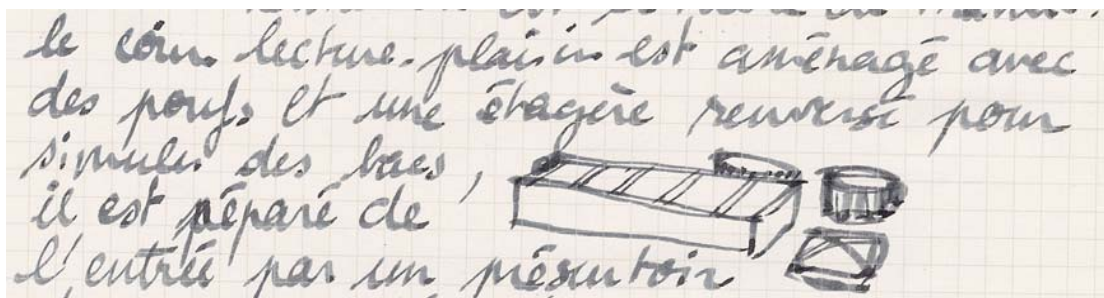 le coin lecture-plaisir est aménagé avec
des poufs et une étagère renversé pour
simuler des bacs,
il est séparé de
l'entrée par un présentoir